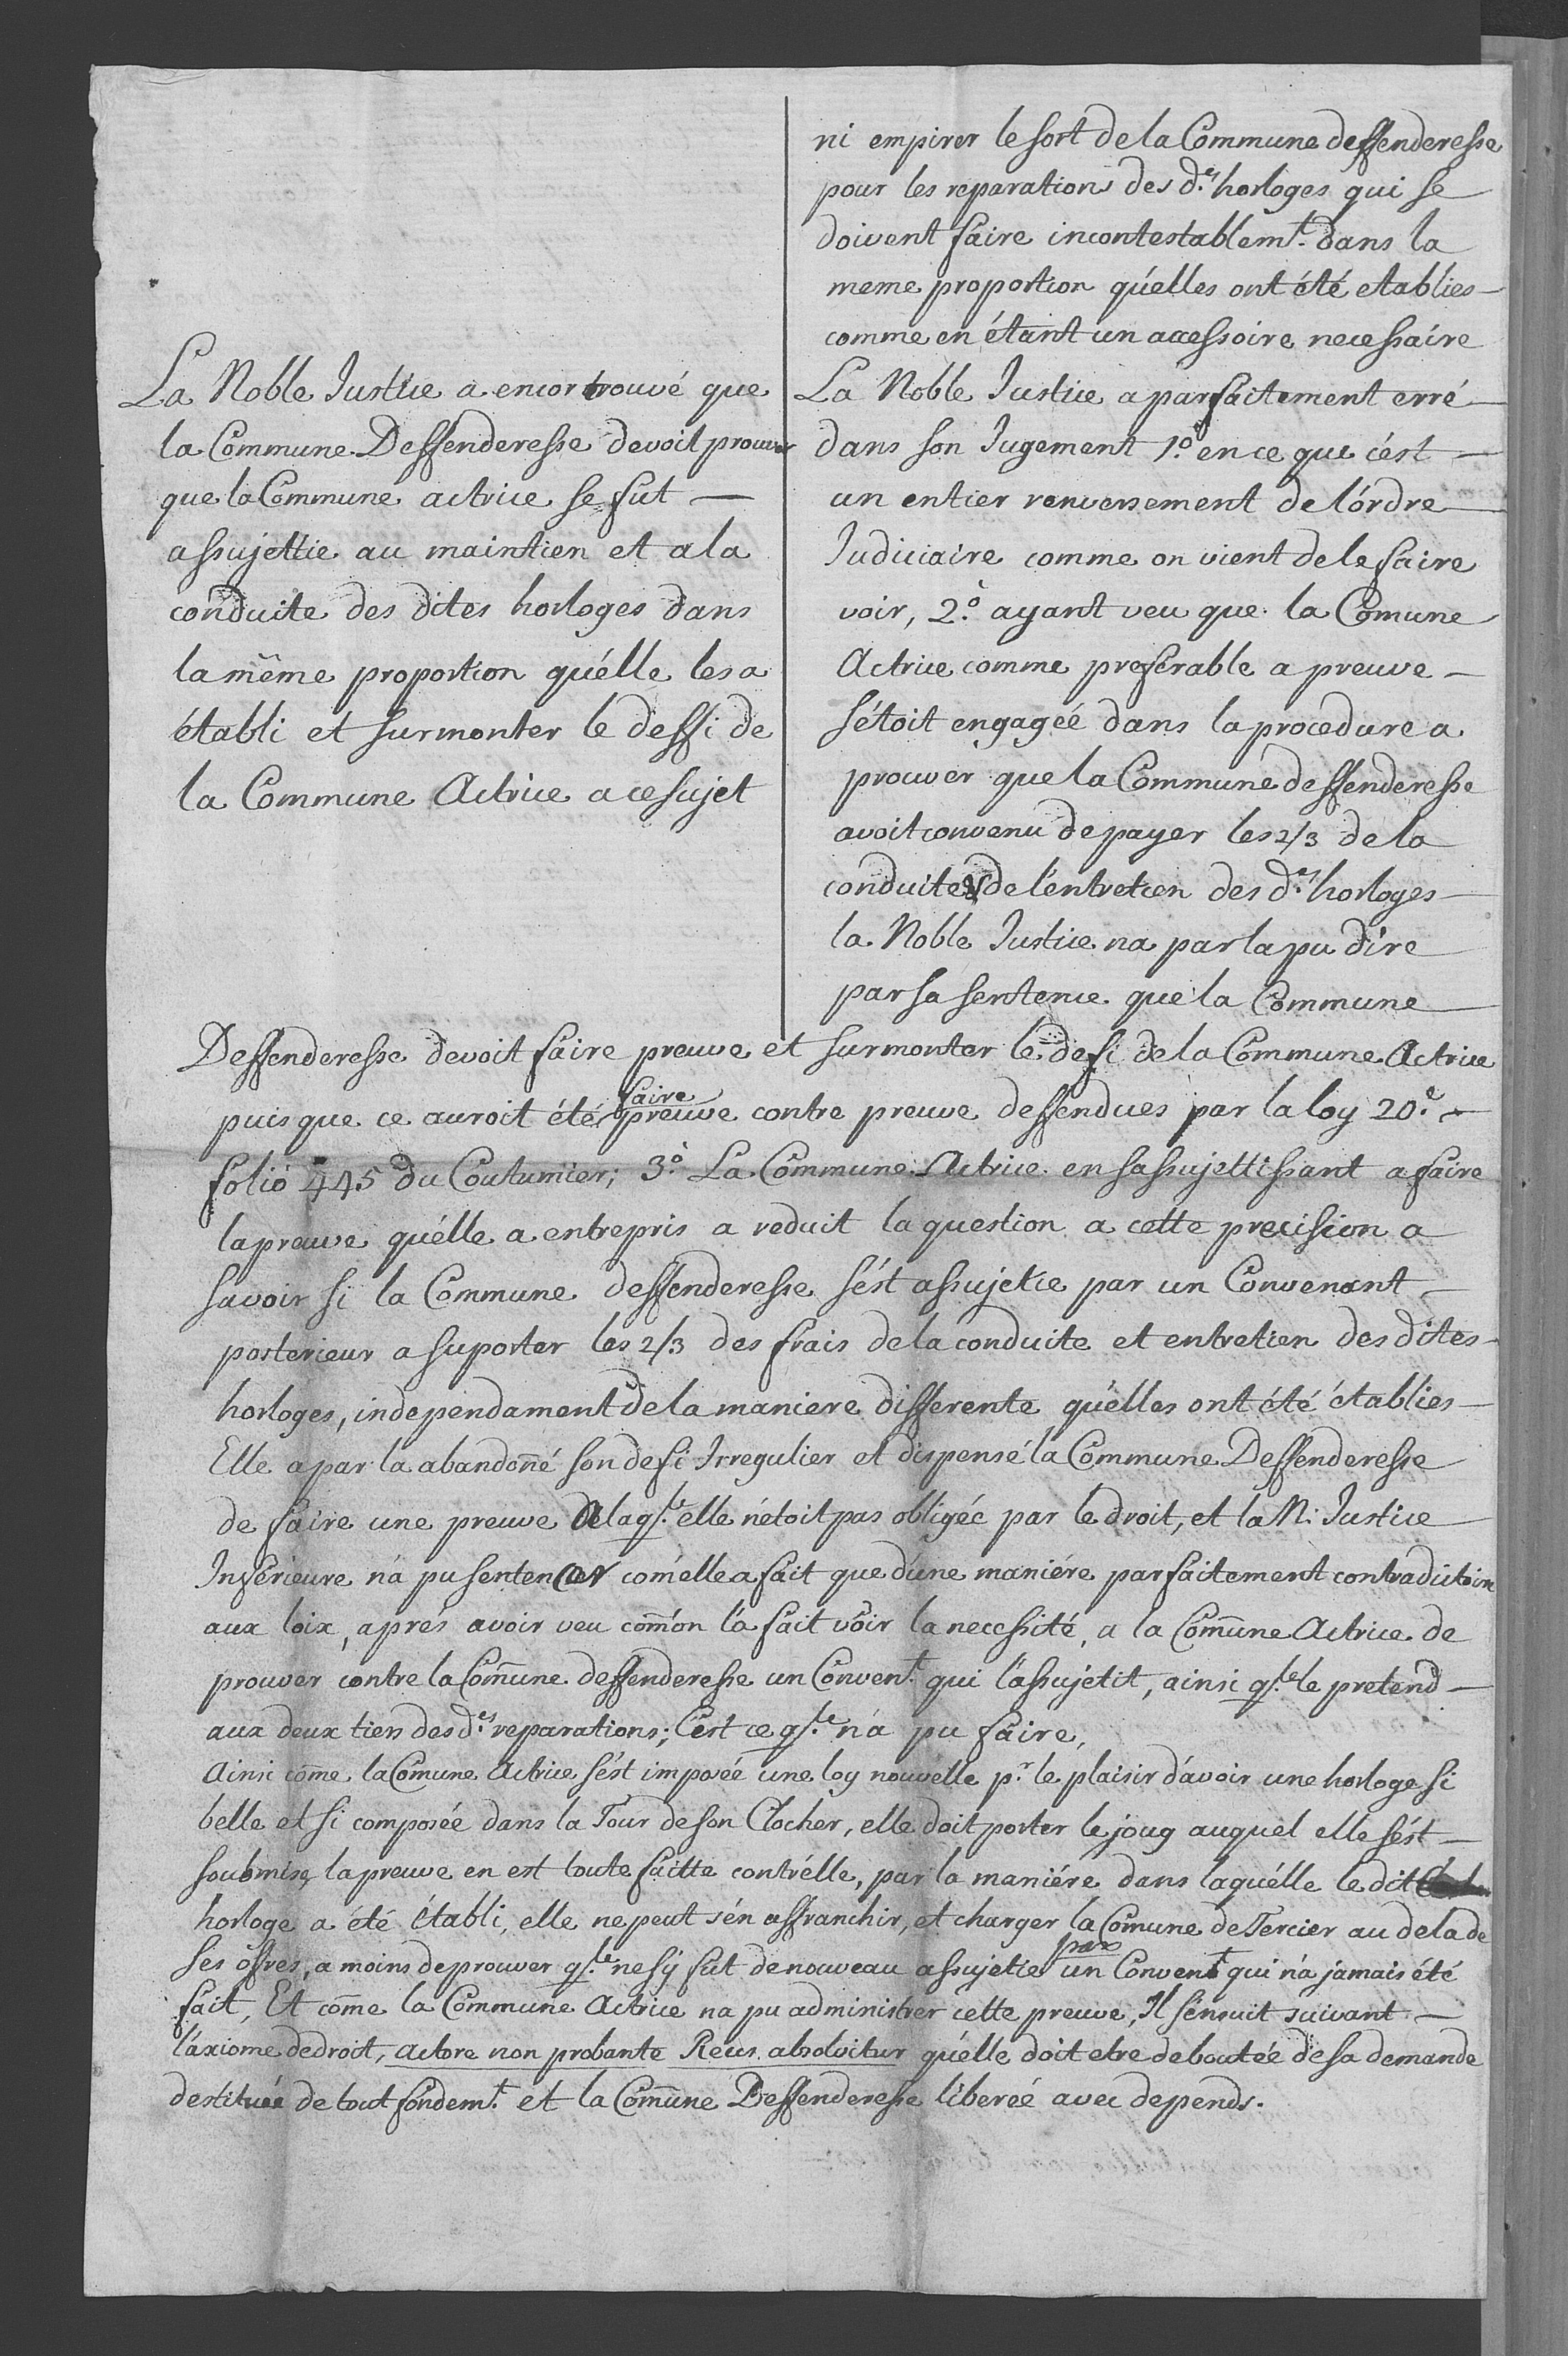 ni empirer le sort de la Commune deffenderesse
pour les reparations des d.es horloges qui se
doivent faire incontestablem.t dans la
meme proportion qu'elles ont été etablies –
comme en étant un accessoire necessaire
La Noble Justice a encor trouvé que
la Commune Deffenderesse devoit prouver
que la Commune actrice se fut —
assujettie au maintien et a la
conduite des dites horloges dans
la même proportion qu'élle les a
établi et surmonter le deffi de
la Commune Actrice a ce sujet
La Noble Justice a parfaitement erré —
dans son Jugement 1.o en ce que c'ést —
un entier renversement de l'órdre —
Judiciaire comme on vient de le faire
voir, 2.o ayant veu que la Comune
Actrice comme preferable a preuve —
s'étoit engagéé dans la procedure a
prouver que la Commune deffenderesse
avoit convenu de payer les 2/3 de la
conduite & de l'entretien des d.es horloges —
la Noble Justice na par la pu dire
par sa sentence que la Commune —
Deffenderesse devoit faire preuve et surmonter le defi de la Commune Actrice
puisque ce auroit été faire preuve contre preuve deffendues par la loy 20.e –
folio 445 du Coutumier; 3.o La Commune Actrice en sassujettissant a faire
la preuve qu'élle a entrepris a reduit la question a cette precision a
savoir si la Commune deffenderesse s'ést assujetie par un Convenant –
posterieur a suporter les 2/3 des frais de la conduite et entretien des dites –
horloges, independament de la maniere differente qu'élles ont été établies —
Elle a par la abandoñé son defi Irregulier et dispensé la Commune Deffenderesse
de faire une preuve A laq.le elle n'étoit pas obligée par le droit, et la N: Justice
Inférieure n'a pu sentencer com'elle a fait que d'une maniére parfaitement contradictoire
aux loix, aprés avoir veu com̃'on l'a fait voir la necessité, a la Com̃une Actrice de
prouver contre la Com̃une deffenderesse un Conven.t qui l'assujétit, ainsi q.le le pretend —
aux deux tiers des d.es reparations; C'est ce q.le n'a pu faire,
Ainsi com̃e la Comune Actrice s'ést imposéé une loy nouvelle p.r le plaisir d'avoir une horloge si
belle et si composée dans la Tour de son Clocher, elle doit porter le joug auquel elle s'ést —
soubmise, la preuve en est toute faitte contr'élle, par la maniére dans laquélle le dit
horloge a été établi, elle ne peut s'én affranchir, et charger la Com̃une de Tercier au dela de
ses offres, a moins de prouver q.le ne s'ÿ fut de nouveau assujetie par un Conven.t qui n'a jamais été
fait, Et com̃e la Commune Actrice na pu administrer cette preuve, Il s'énsuit suivant —
l'áxiome de droit, actore non probante Reus absolvitur qu'élle doit etre deboutée de sa demande
destituée de tout fondem.t et la Com̃une Deffenderesse liberéé avec depends.